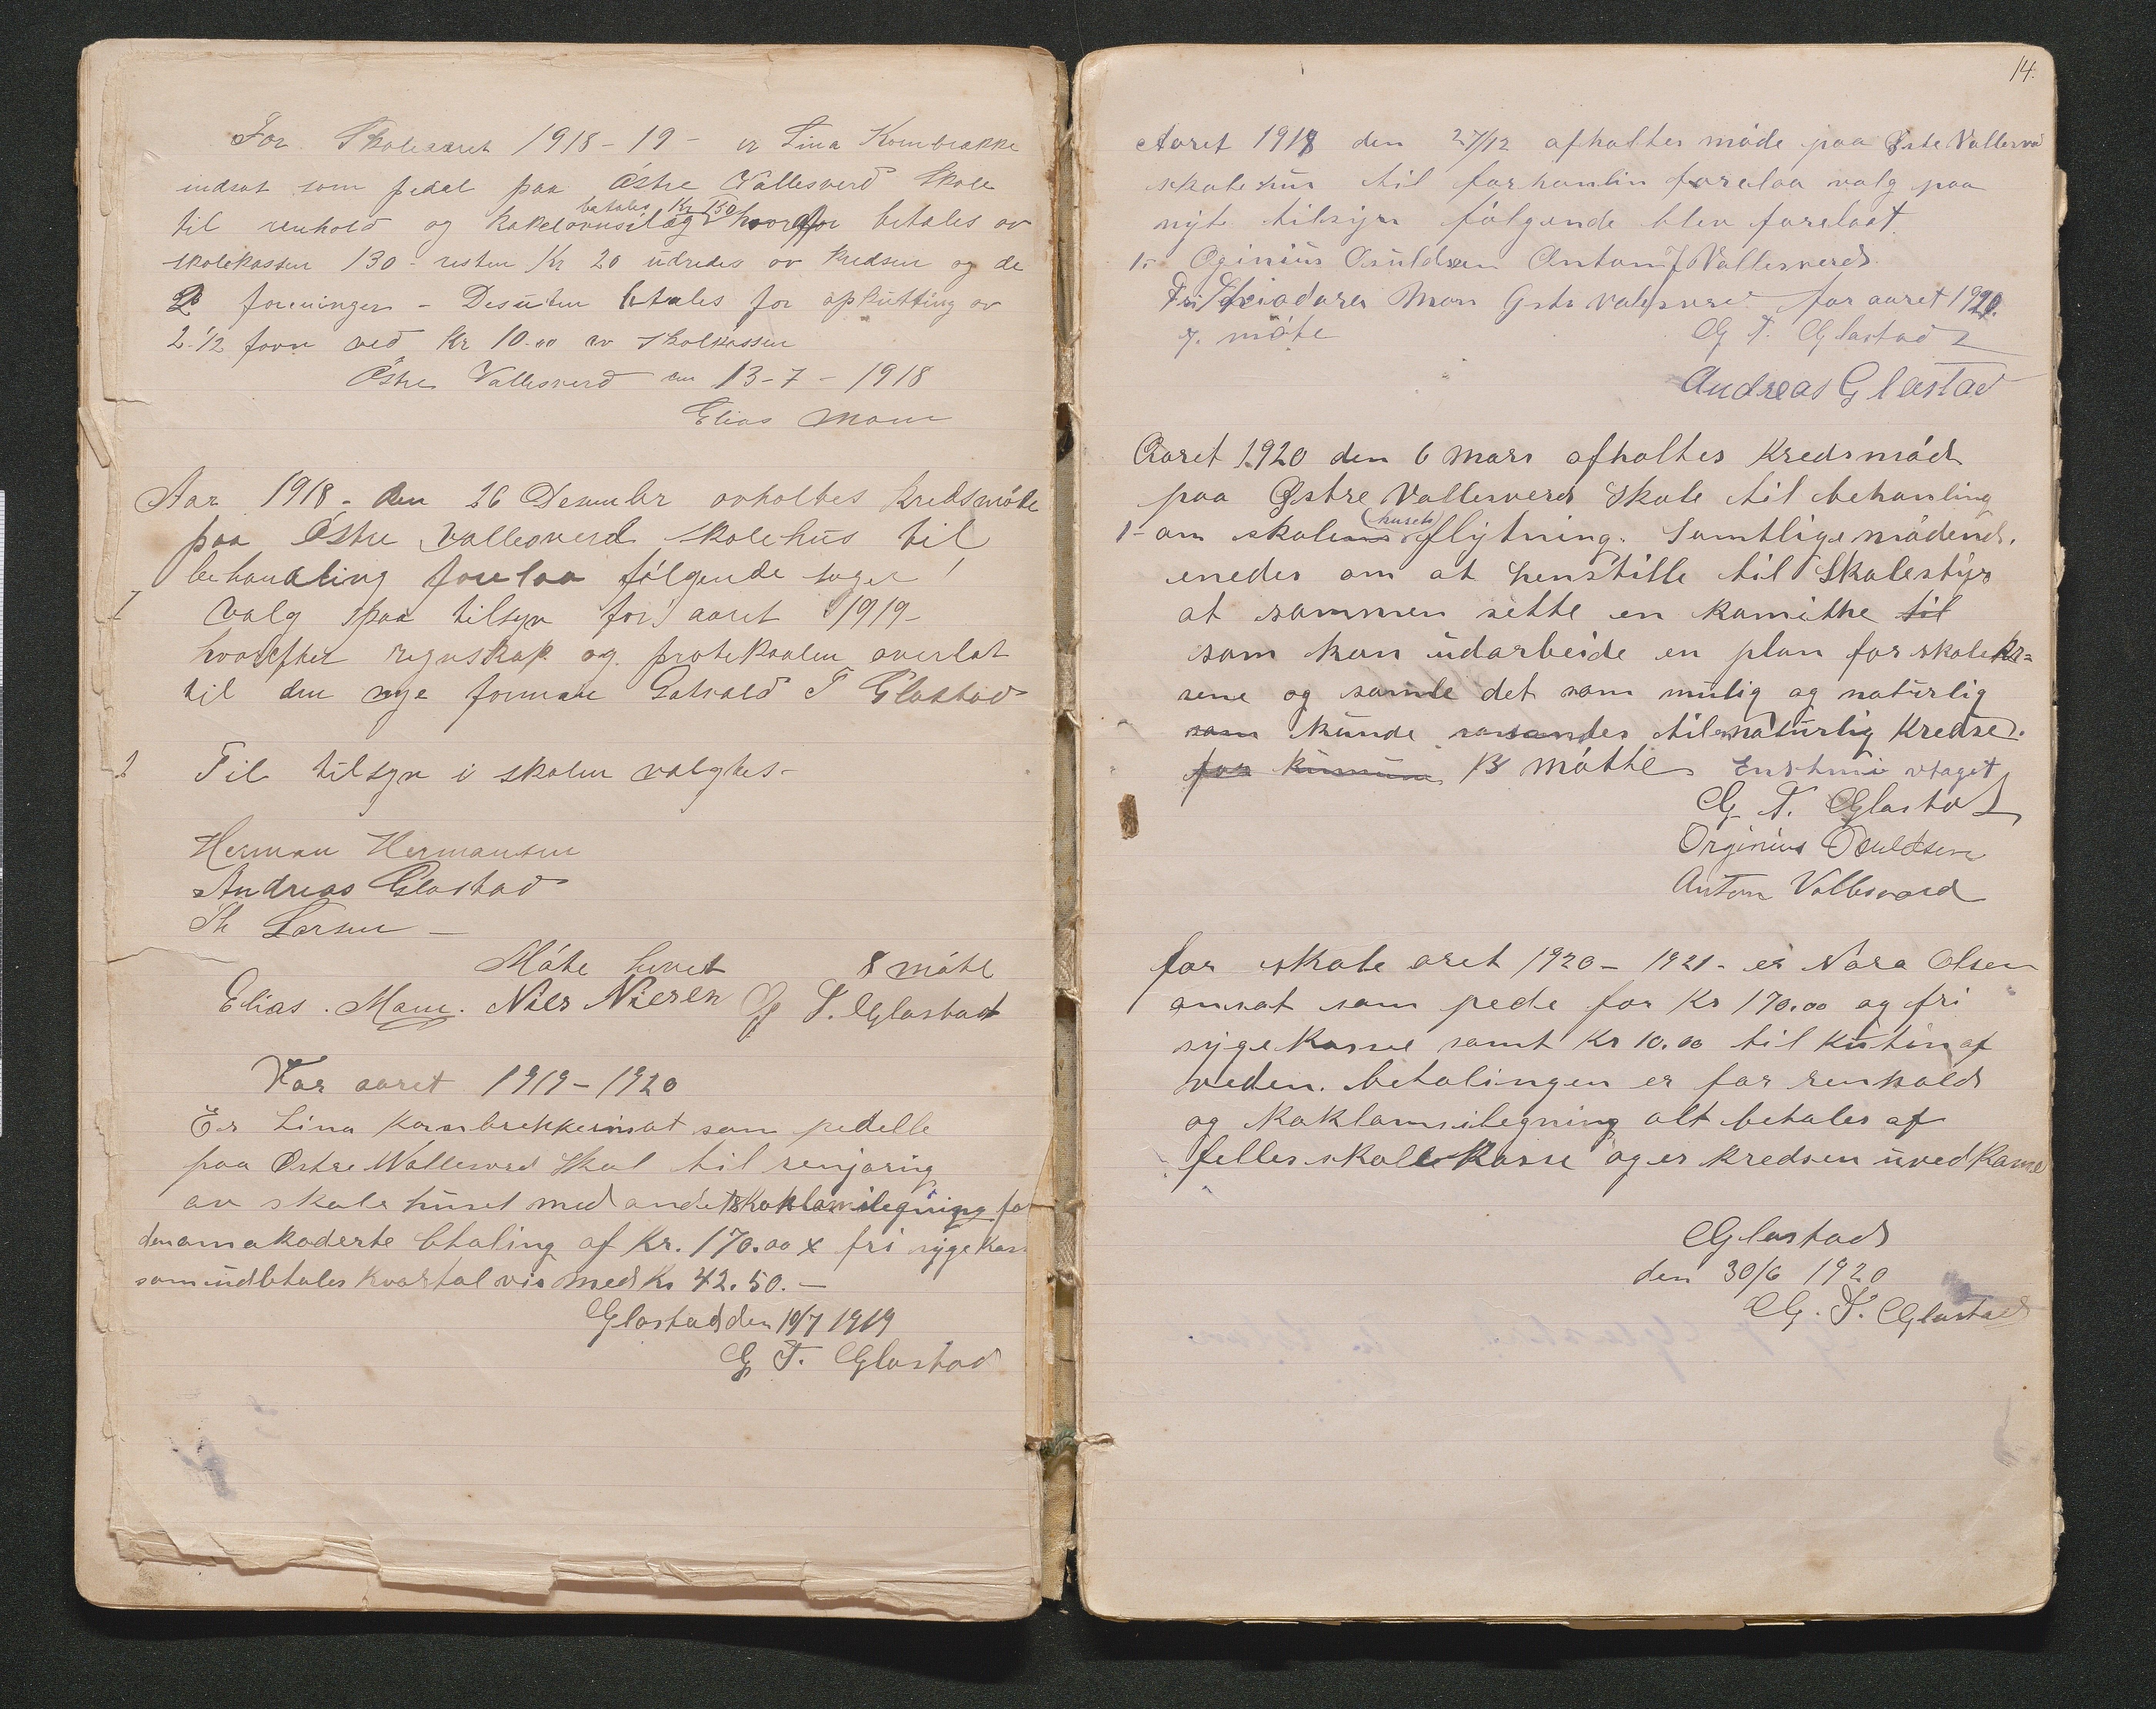 For Skoleaaret 1918-19- er Lina Kornbrække
indsat som pedel paa Østre Vallesverd Skole
betales Kr 150
til renhold og kakelovnsilæg hvorfor betales av
skolekassen 130- resten Kr 20 udredes av kredsen og de
2 foreninger - Desuten betales for opkutting av
2 1/2 favn ved Kr 10.00 av skolkassen
Østre Vallesverd den 13-7-1918
Elias Moen
Aar 1918- den 26 Desember avholtes kredsmøte
paa Østre Vallesverd skolehus til
behandling forelaa følgende sager
I Valg paa tilsyn for aaret 1919-
hvorefter regnskap og protokaalen overlat
til den nye forman Gotvald T Glastad
2 Til tilsyn i skolen valgtes-
Herman Hermansen
Andreas Glastad
Th Larsen -
Møte hevet 8 møtte
Elias. Moen. Nils Nilsen G T. Glastad
For aaret 1919-1920
Er Lina Kornbrekke insat som pedelle
paa Østre Vallesverd Skol til renjøring
av skolehuset med andet kaklovnilegning for
den amakoderte btaling af Kr. 170.00 x fri sygekas
som udbtales kvartal vis med Kr 42.50.-
Glastad den 10/7 1919
G T. Glastad
14.
Aaret 1918 den 27/12 afholtes møde paa Østre Vallesverd
skolehus til forhanlin forelaa valg paa
nyt tilsyn følgende blev foreslaat
1- Oginius Osuldsen Anton J Vallesverd
Fru Theodora Moen Østr Valesverd for aaret 1920.
7. møte G T. Glastad
Andreas Glastad
Aaret 1920 den 6 Mars afholtes Kredsmød
paa Østre Vallesverd Skole til behanling
1- om skolens (husets) flytning. Samtlige mødend.
enedes om at henstille til Skolestyr
at sammen sette en kamitte til
som kan udarbeide en plan for skolekr=
sene og samle det som mulig og naturlig
som kunde samles til naturlig Kredse.
for 13 møtte Enstmi vtaget
G T. Glastad
Orginius Osuldsen
Anton Vallesverd
for skole aret 1920-1921- er Nora Olsen
ansat som pedel for Kr 170.00 og fri
sygekasse samt Kr 10.00 til kutin af
veden. betalingen er for renhold
og kaklovnsilegning alt betales af
felles skolekasse og er kredsen uvedkame
Glastad
den 30/6 1920
G. T. Glastad